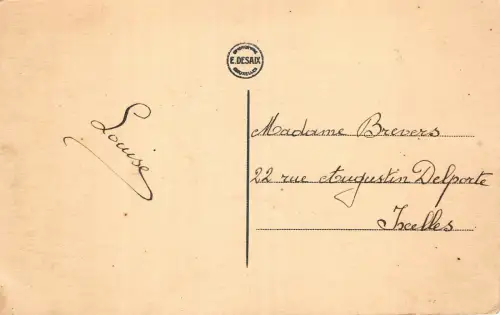 E. DESAIX
BRUXELLES
Louise
Madame Brevers
22 rue Augustin Delporte
Ixelles